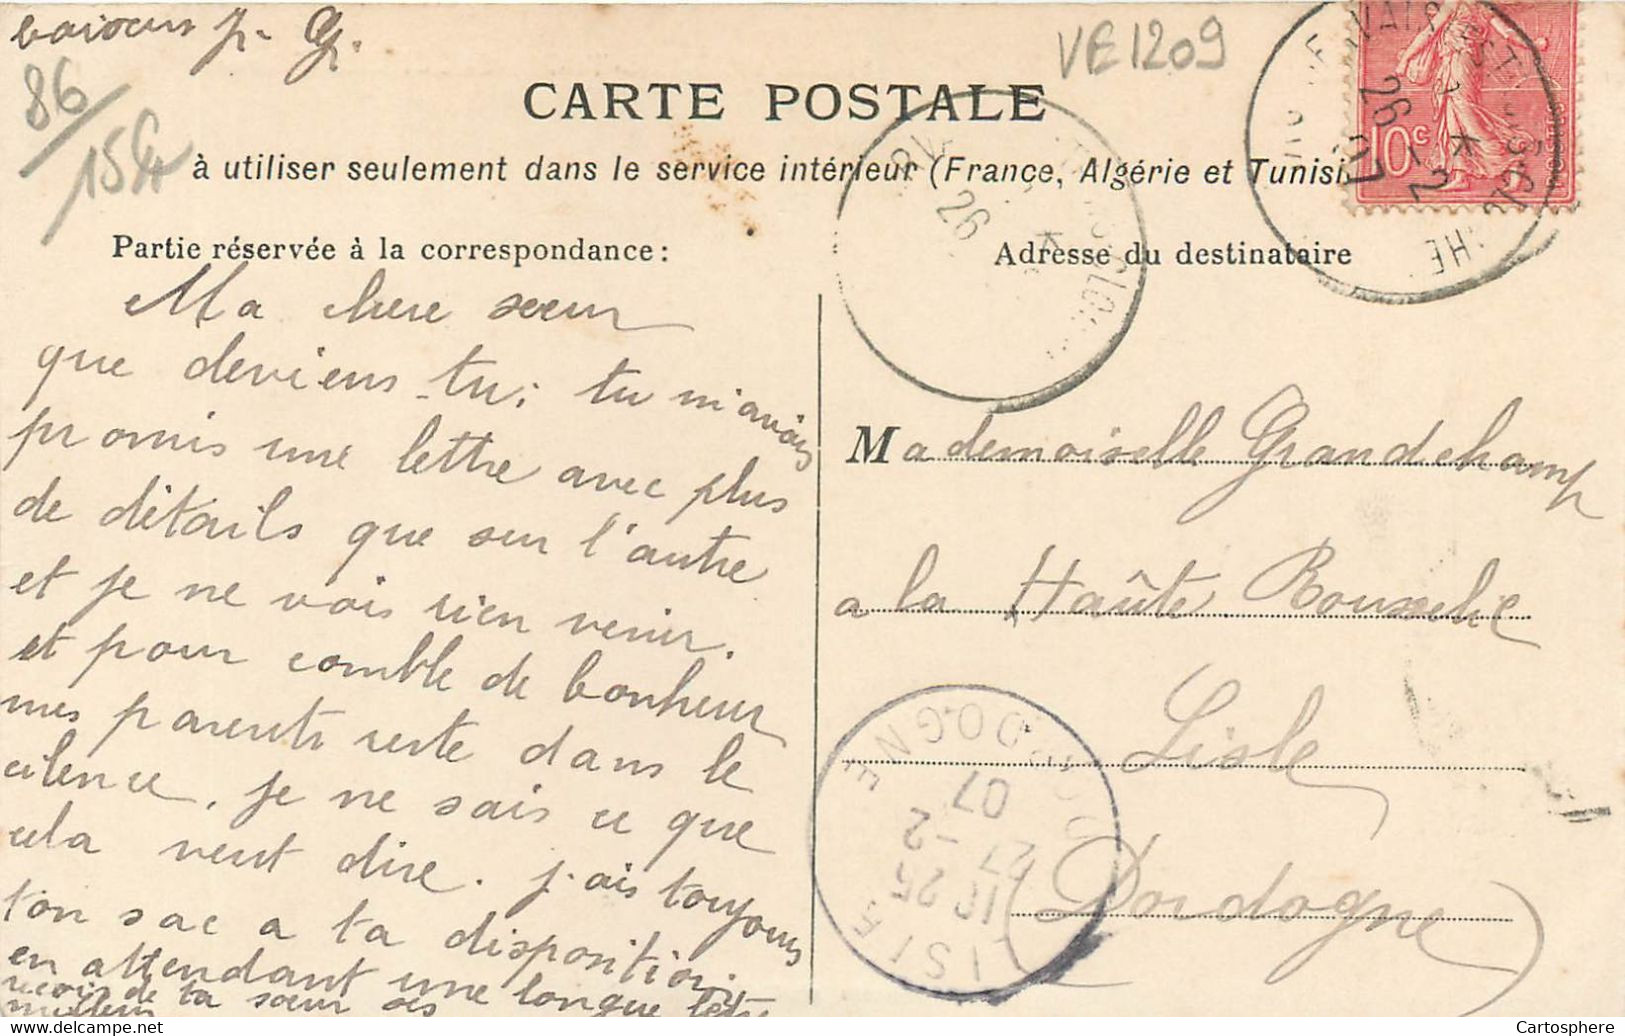 baiseus J. G.
VE1209
86/
15 Gr
CARTE POSTALE
à utiliser seulement dans le service intérieur (France, Algérie et Tunisi
10c
26
26 -2
07
Partie réservée à la correspondance:
Adresse du destinataire
Ma chere sœur
que deviens-tu; tu m'avais
promis une lettre avec plus
de détails que sur l'autre
et je ne vois rien venir.
et pour comble de bonheur
mes parents reste dans le
silence. je ne sais ce que
cela veut dire. j'ais toujours
ton sac a ta disposition,
en attendant une longue lettre
recois de ta sœur des
meilleurs
Mademoiselle Grandchamp
a la Haûte Rouxelie
Lisle
(Dordogne)
LISLE DORDOGNE
10 25
27 -2
07
Cartosphere